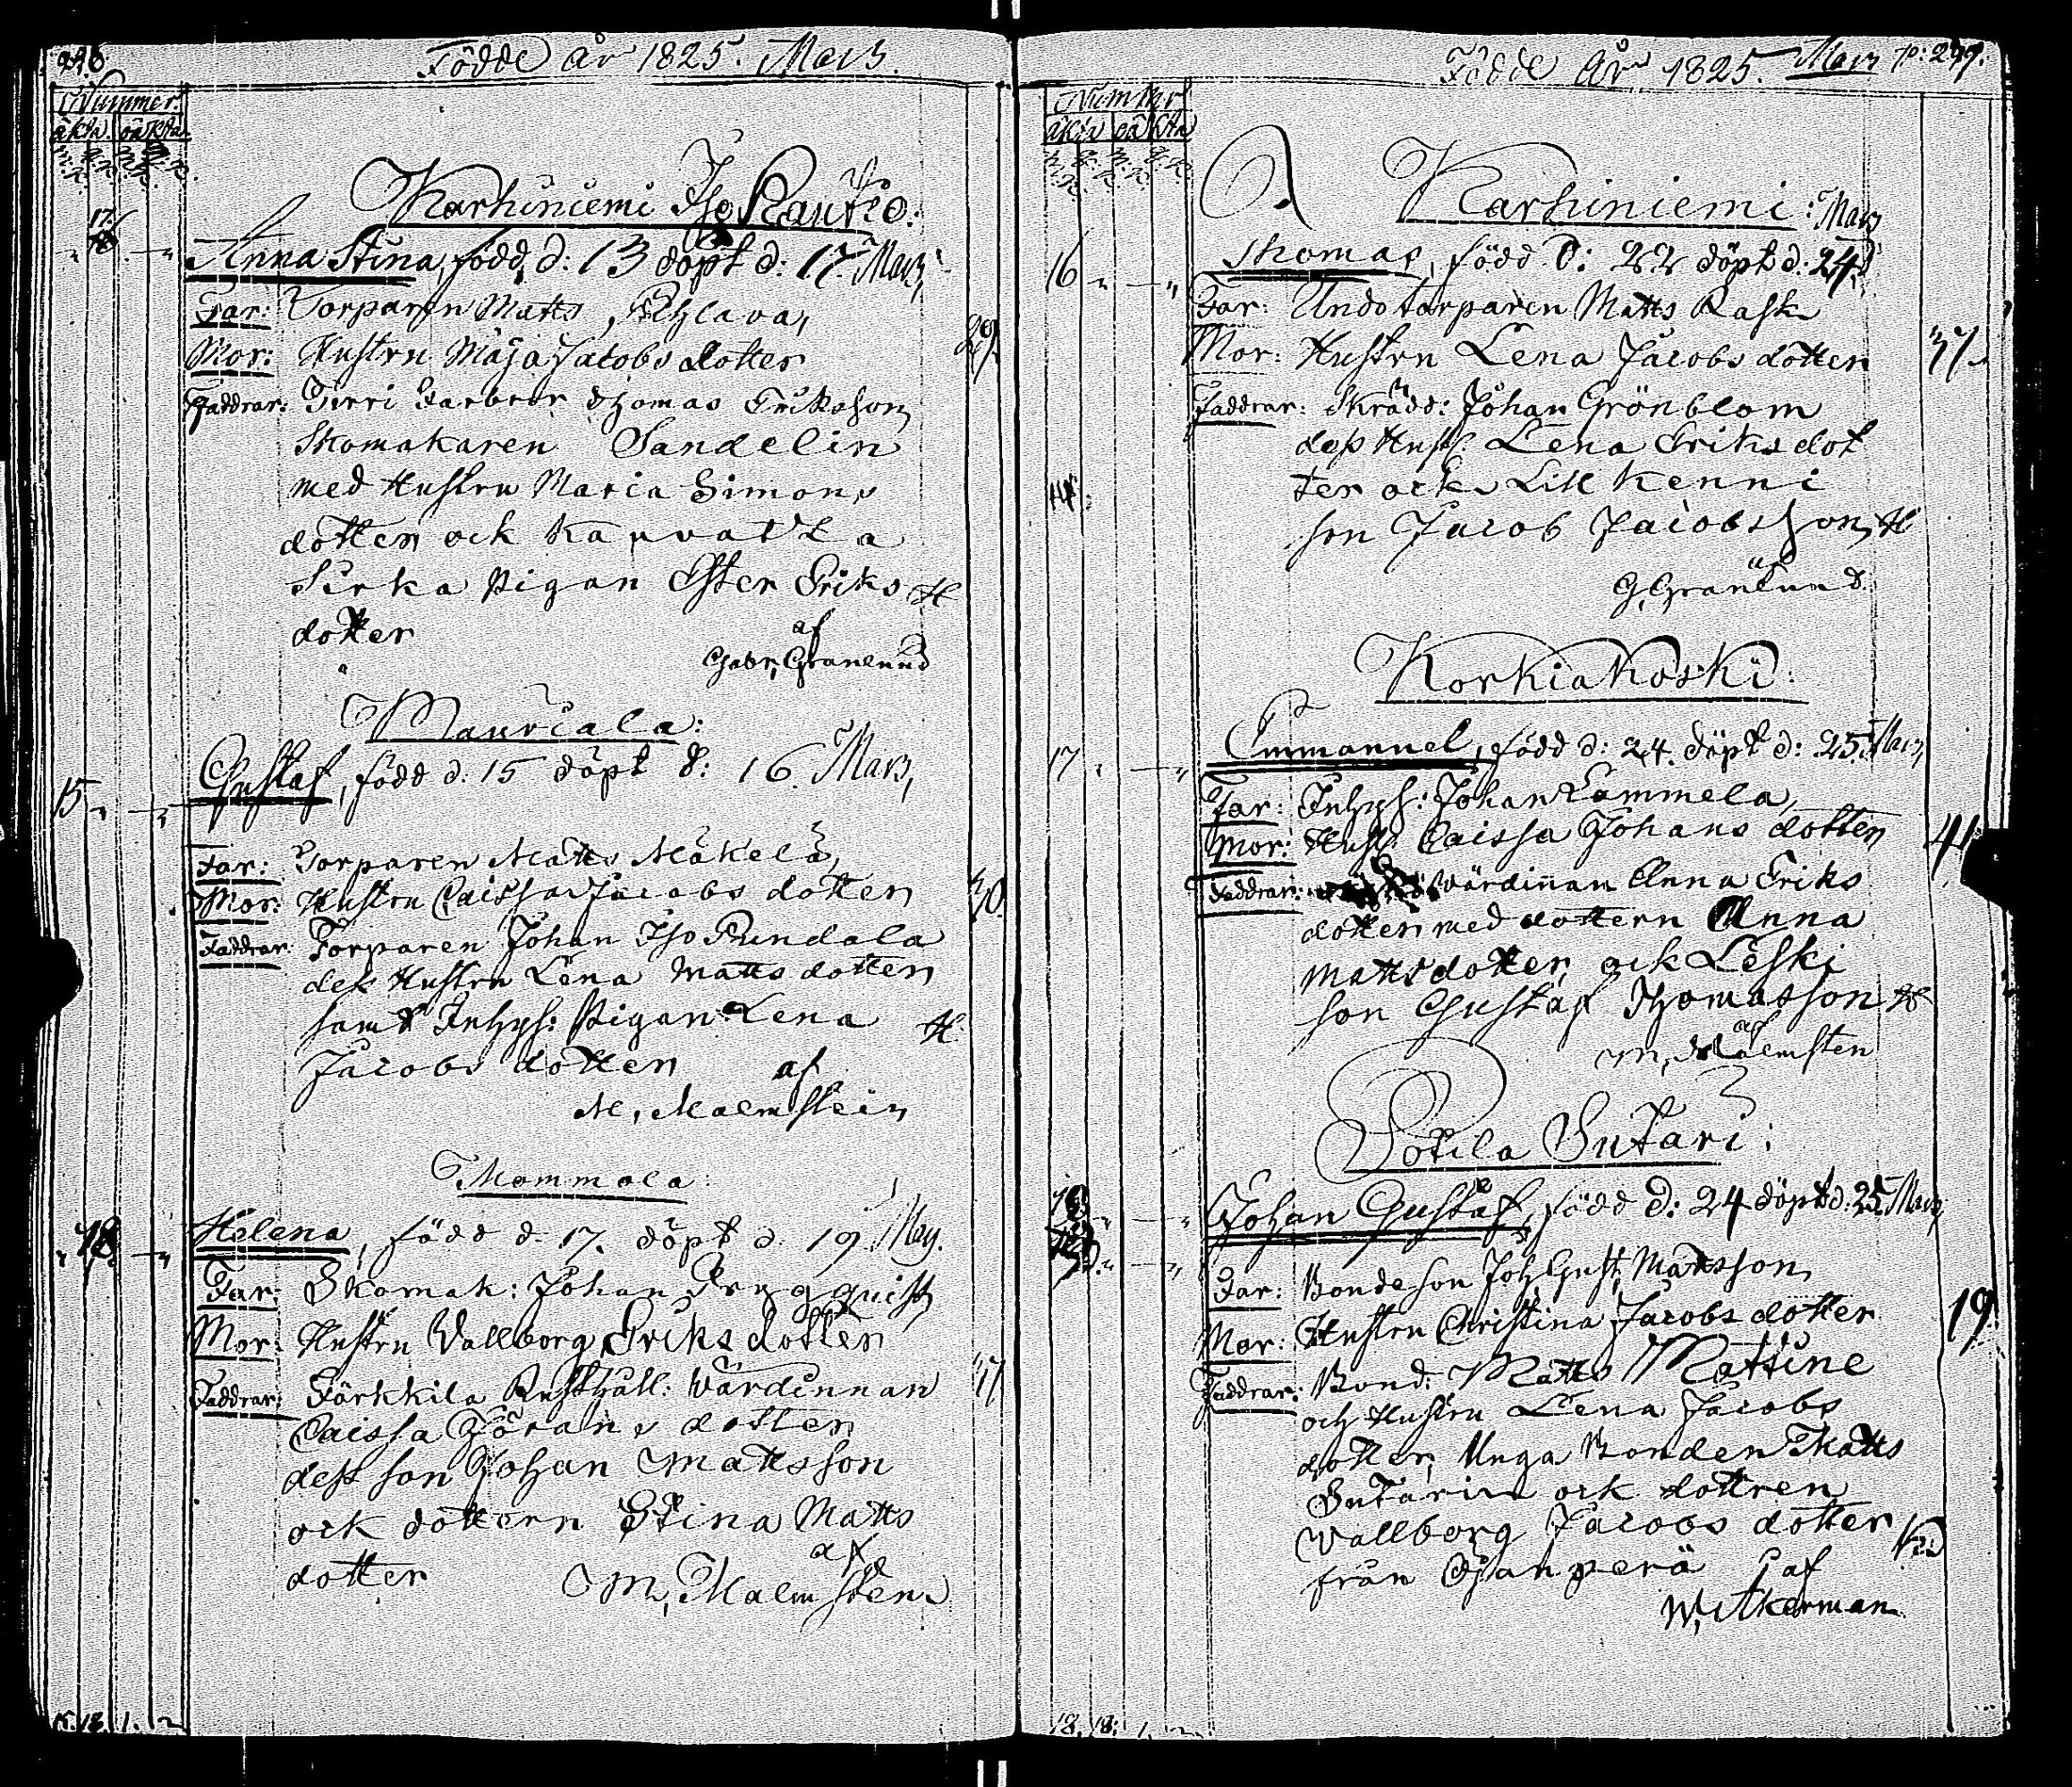 Födde år 1825. Mars.
Nummer
äkta. oäkta.
Karhiniemi Iso Kauttio.
Anna Stina, född d: 13 döpt d: 17 Mars,
Far: Torparen Matts
Mor: Hustru Maja Jacobs dotter
29.
Faddrar: Thomas Eriksson
Skomakaren Sandelin
med Hustru Maria Simons
dotter ock
Pigan Ester Eriks
dotter
af
Gabr, Granlund
Mauriala:
15 Gustaf, född d. 15 döpt d: 16 Mars,
Far: Torparen Matts Mäkelä,
Mor: Hustru Caissa Jacobs dotter
Faddrar: Torparen Johan Iso
dess Hustru Lena Matts dotter
samt Inhys: Pigan Lena
Jacobs dotter
af
M, Malmstein
Mommola
Helena, född d. 17. döpt d. 19
Far: Skomak: Johan
Mor: Hustru Vallborg Eriks dotter
Faddrar: Färkkila Rusthåll: Värdinnan
Caissa Görans dotter
dess son Johan Mattsson
ock dottern Stina Matts
dotter
af
M, Malmsten
Födde år 1825. Mars p: 297.
Nummer
äkta oäkta
Karhiniemi: Mars
16 Thomas, född d: 22 döpt d: 24
Far: Undotorparen Matts Rask
Mor: Hustru Lena Jacobs dotter
37.
Faddrar: Skrädd: Johan Grönblom
dess Hust: Lena Eriks dot
ter ock Lill Kenni
son Jacob Jacobsson
af
G, Granlund
Korkiakoski:
17 Emmanuel, född d: 24. döpt d: 25. Mars,
Far: Inhys: Johan Lammela,
Mor: Hust: Caissa Johans dotter
41
Faddrar: Värdinnan Anna Eriks
dotter med dottern Anna
Mattsdotter, ock Leski
son Gustaf Thomasson
af
M, Malmsten
Sotila Sutari:
Johan Gustaf, född d: 24 döpt d: 25. Mars,
Far: Bondeson Joh Gust, Mattsson,
Mor: Hustru Christina Jacobs dotter
19.
Faddrar: Bond: Matts Mattine
och Hustru Lena Jacobs
dotter, Unga Bonden Matts
Sutari ock dottren
Vallborg Jacobs dotter
från Ojanperä
af
W, Åkerman